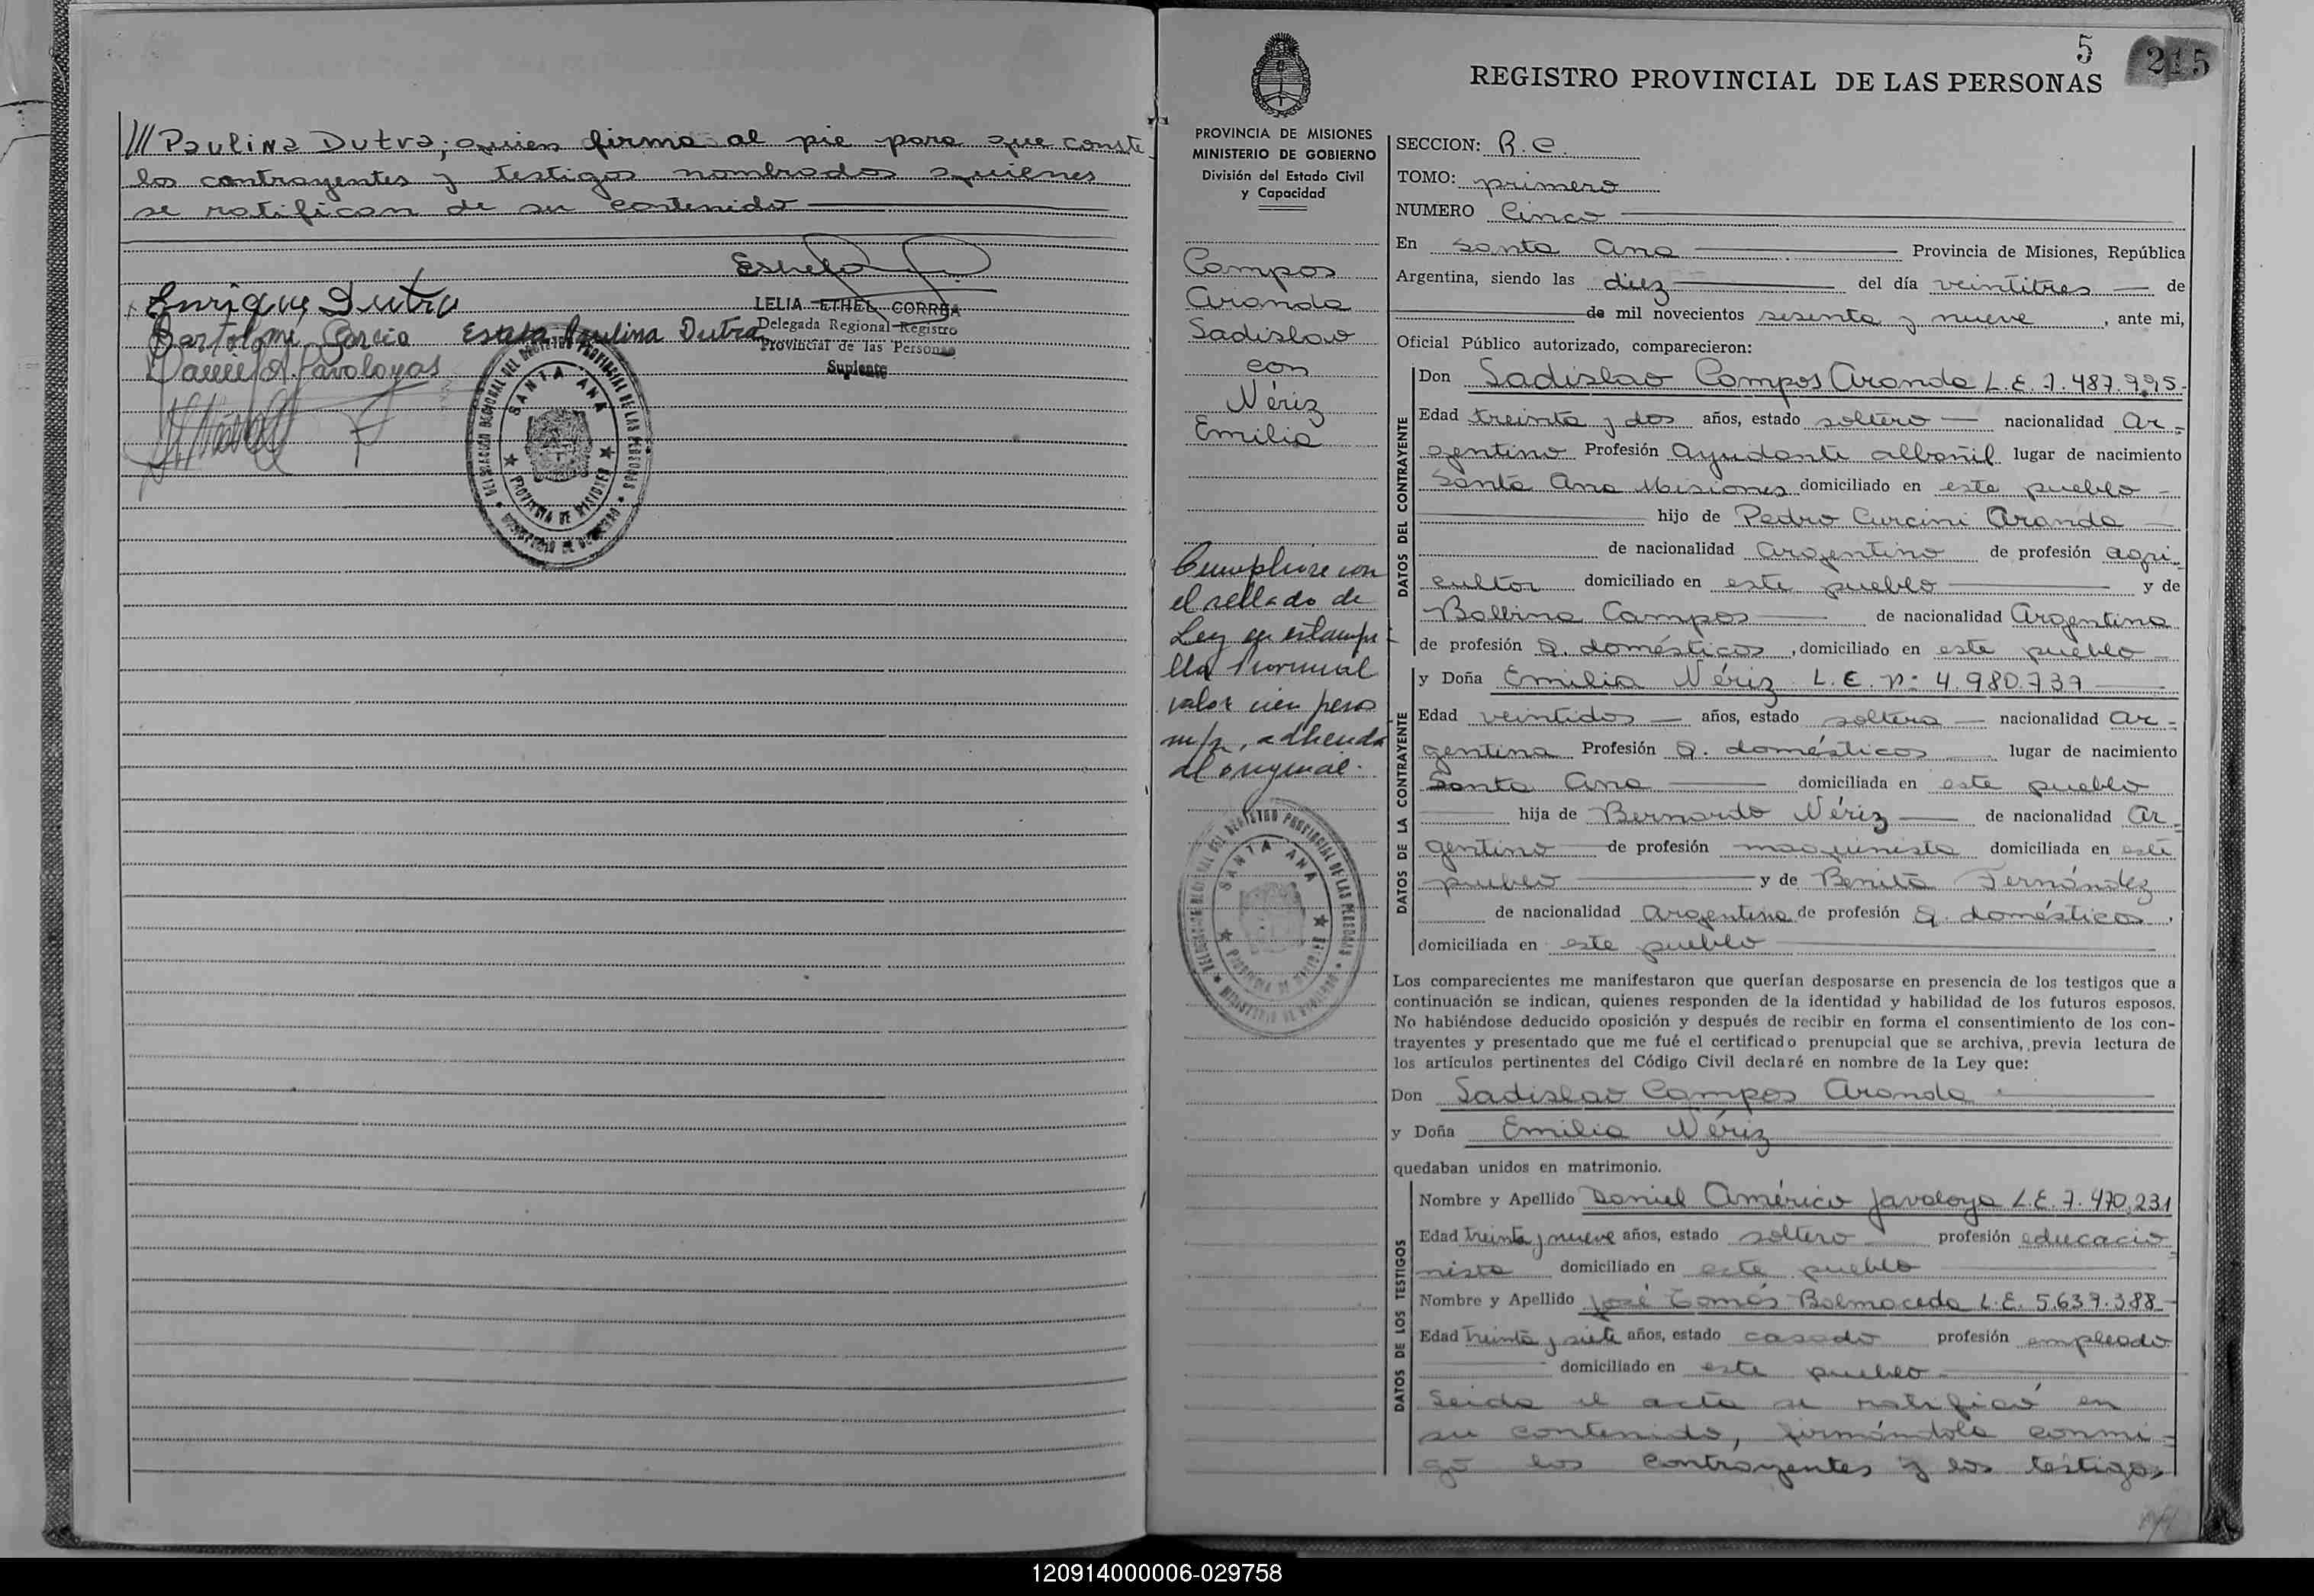 /// Paulina Dutra; quien firma al pie para que conste
los contrayentes y testigos nombrados quienes
se ratifican de su contenido
Enrique Dutra
LELIA ETHEL CORREA
Delegada Regional Registro
Provincial de las Personas
Suplente
Bartolomé García
Paulina Dutra
SANTA ANA
PROVINCIA DE MISIONES
5
215
REGISTRO PROVINCIAL DE LAS PERSONAS
PROVINCIA DE MISIONES
MINISTERIO DE GOBIERNO
División del Estado Civil
y Capacidad
Campos
Aranda
Sadislao
con
Nériz
Emilia
Cumpliose con
el sellado de
Ley en estampi
lla
valor cien pesos
m/n, adherida
al original.
SANTA ANA
PROVINCIA DE MISIONES
SECCION: R.C.
TOMO: primero
NUMERO Cinco
En Santa Ana Provincia de Misiones, República
Argentina, siendo las diez del día veintitres de
de mil novecientos sesenta y nueve, ante mi,
Oficial Público autorizado, comparecieron:
DATOS DEL CONTRAYENTE
Don Sadislao Campos Aranda L.E. 7.487.995-
Edad treinta y dos años, estado soltero nacionalidad Ar-
gentino Profesión Ayudante albañil lugar de nacimiento
Santa Ana Misiones domiciliado en este pueblo
hijo de Pedro Curcini Aranda
de nacionalidad Argentino de profesión agri
cultor domiciliado en este pueblo y de
Balbina Campos de nacionalidad Argentina
de profesión Q. domésticos, domiciliado en este pueblo
DATOS DE LA CONTRAYENTE
y Doña Emilia Nériz L.E. nº 4.980.737
Edad veintidos años, estado soltera nacionalidad Ar-
gentina Profesión Q. domésticos lugar de nacimiento
Santa Ana domiciliada en este pueblo
hija de Bernardo Nériz de nacionalidad Ar-
gentino de profesión maquinista domiciliada en este
pueblo y de Benita Fernández
de nacionalidad Argentina de profesión Q. domésticos,
domiciliada en este pueblo
Los comparecientes me manifestaron que querían desposarse en presencia de los testigos que a
continuación se indican, quienes responden de la identidad y habilidad de los futuros esposos.
No habiéndose deducido oposición y después de recibir en forma el consentimiento de los con-
trayentes y presentado que me fué el certificado prenupcial que se archiva, previa lectura de
los artículos pertinentes del Código Civil declaré en nombre de la Ley que:
Don Sadislao Campos Aranda
y Doña Emilia Nériz
quedaban unidos en matrimonio.
DATOS DE LOS TESTIGOS
Nombre y Apellido Daniel Américo Javaloya L.E. 7.470.231
Edad treinta y nueve años, estado soltero profesión educacio
nista domiciliado en este pueblo
Nombre y Apellido José Tomás Balmaceda L.E. 5.637.388
Edad treinta y siete años, estado casado profesión empleado
domiciliado en este pueblo
Leida el acta se ratificó en
su contenido, firmándola conmi-
go los contrayentes y los testigos
120914000006-029758